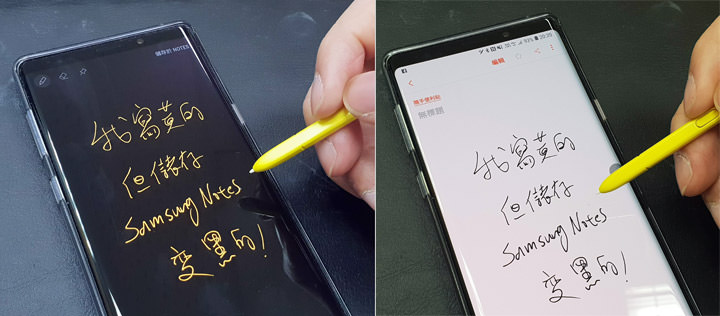 儲存於 NOTES
我寫黃的
但儲存
Samsung Notes
变黑的!
92% 20:20
編輯
隨手便利貼
無標題
我寫黃的
但儲存
Samsung Notes
变黑的!